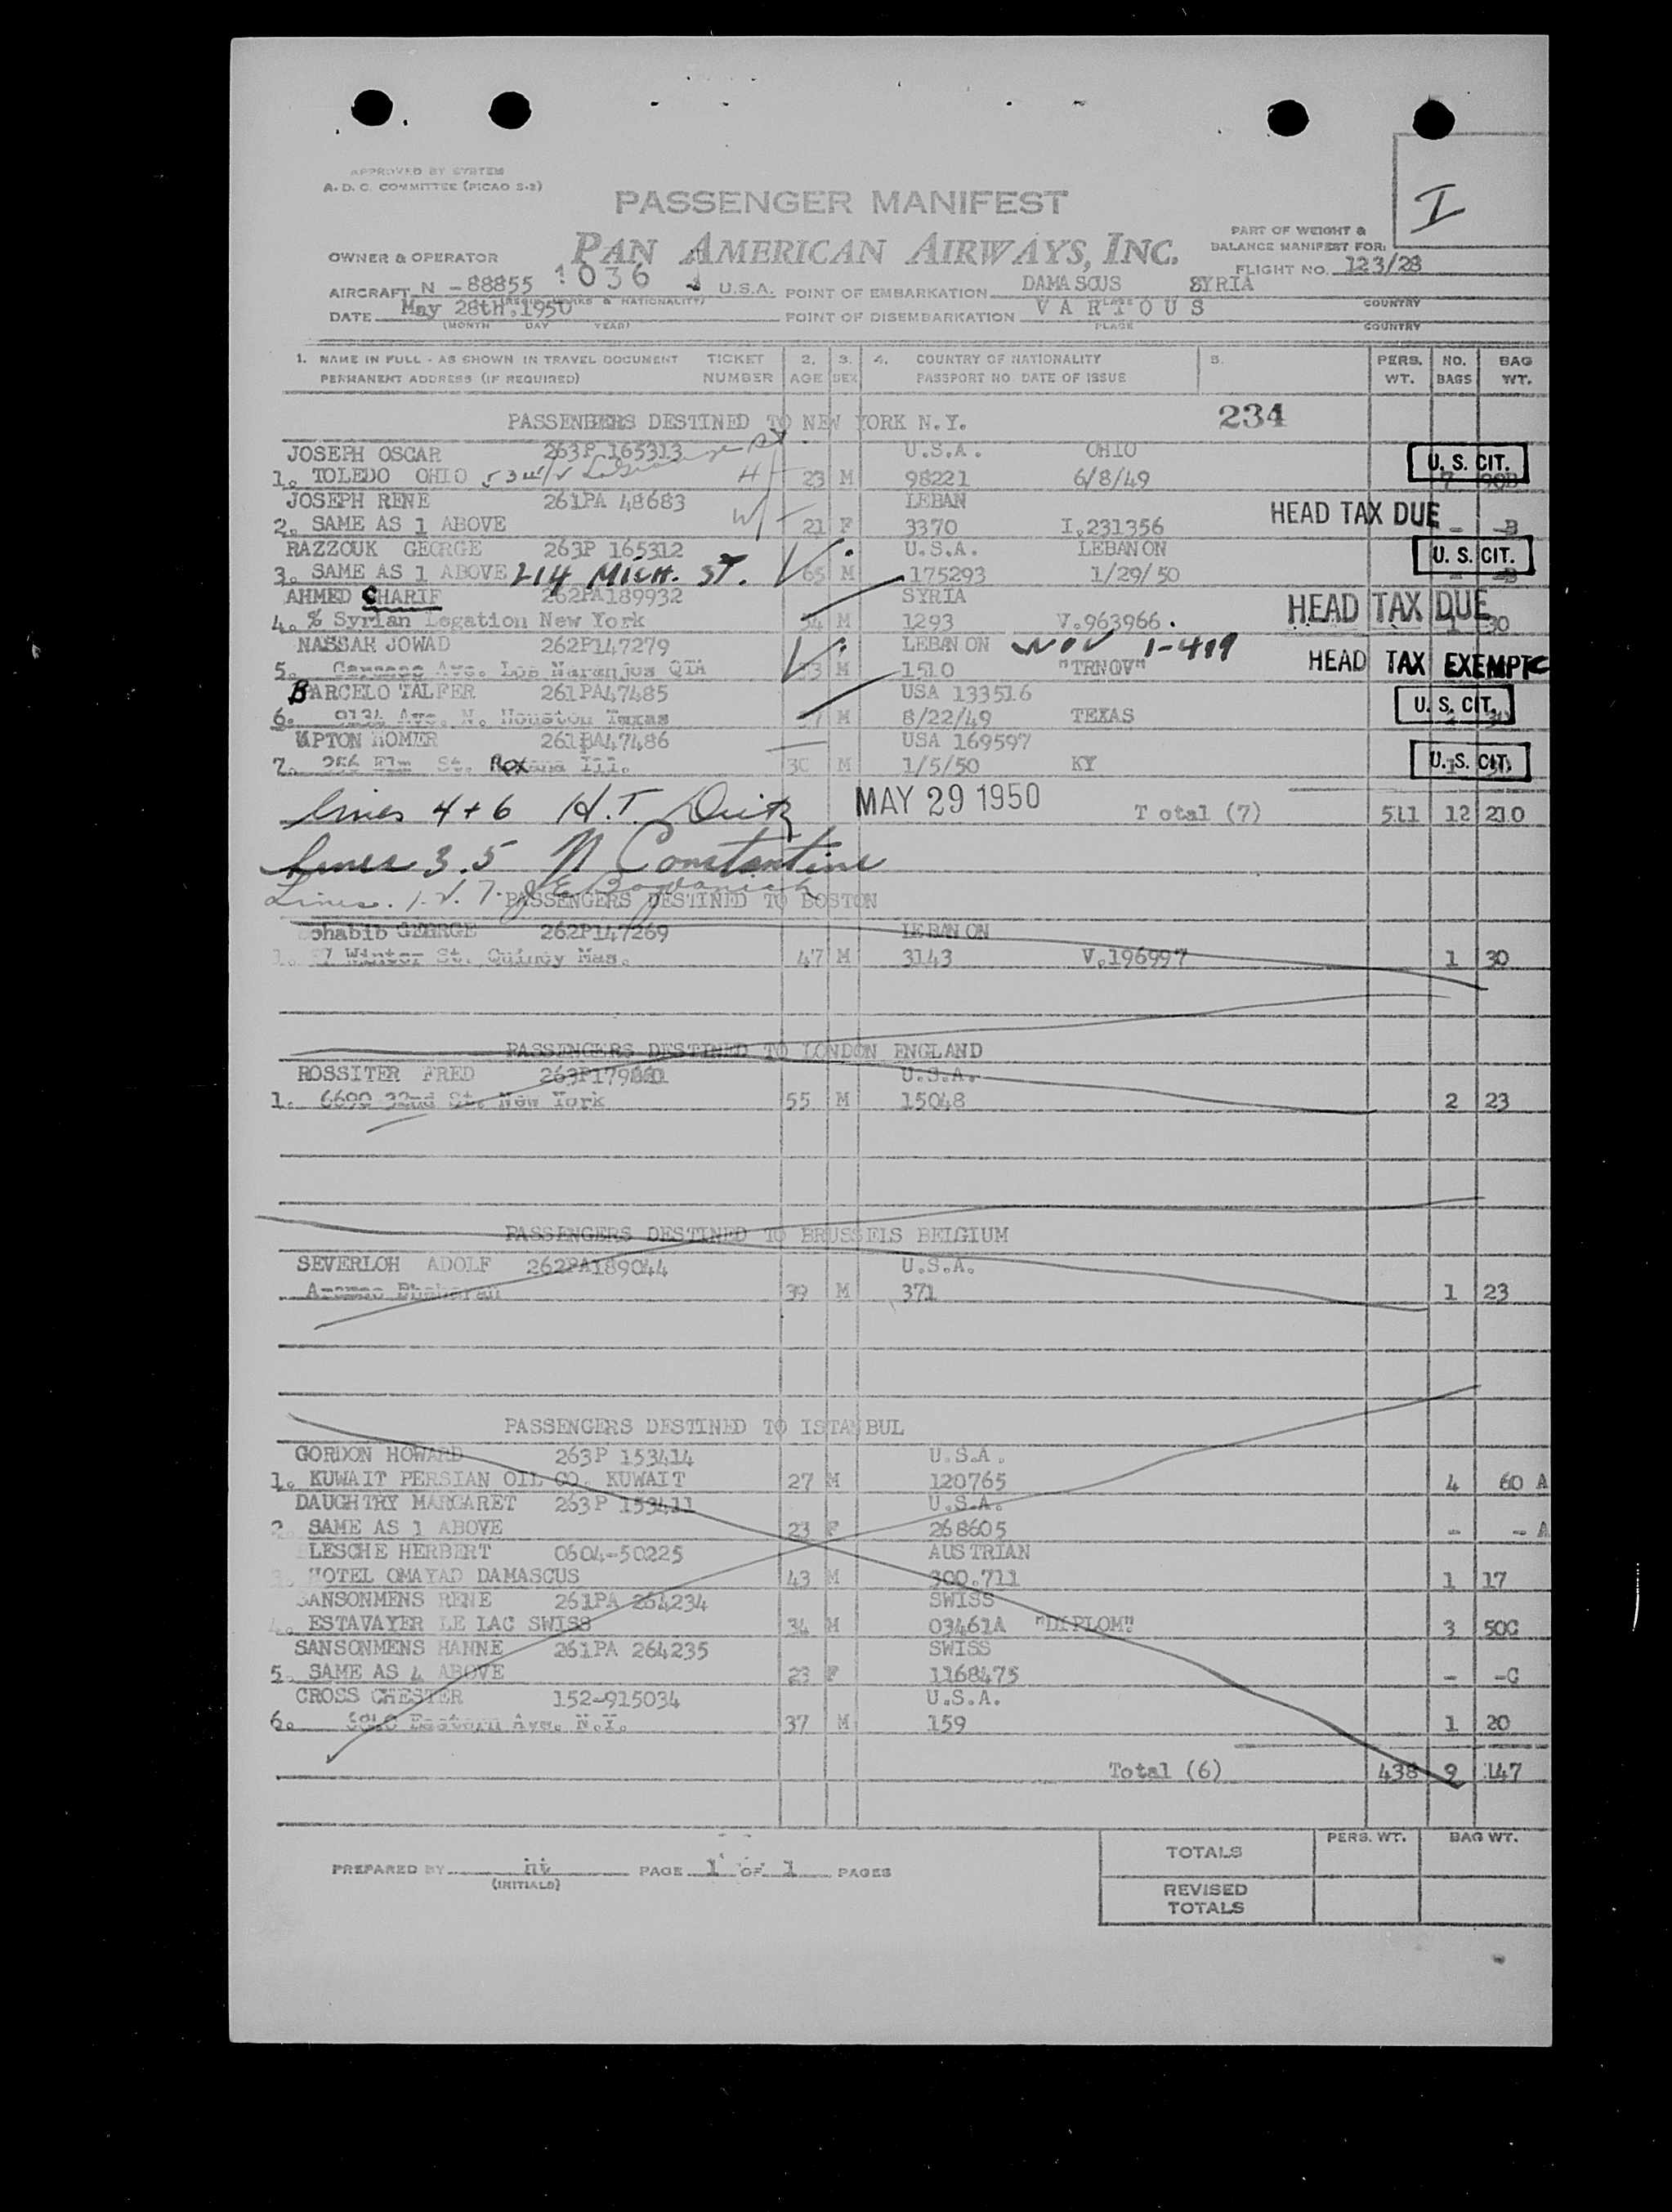 APPROVED BY SYSTEM
A. D. C. COMMITTEE (PICAO S-2)
I
PASSENGER MANIFEST
PART OF WEIGHT &
BALANCE MANIFEST FOR:
OWNER & OPERATOR PAN AMERICAN AIRWAYS, INC.
FLIGHT NO. 123/28
AIRCRAFT N - 88855 1036 U.S.A. POINT OF EMBARKATION DAMASCUS SYRIA
DATE May 28th, 1950 POINT OF DISEMBARKATION V A R I O U S
(MONTH DAY YEAR) PLACE COUNTRY
1. NAME IN FULL - AS SHOWN IN TRAVEL DOCUMENT TICKET 2. 3. 4. COUNTRY OF NATIONALITY 5. PERS. NO. BAG
PERMANENT ADDRESS (IF REQUIRED) NUMBER AGE SEX PASSPORT NO DATE OF ISSUE WT. BAGS WT.
PASSENGERS DESTINED TO NEW YORK N.Y. 234
JOSEPH OSCAR 263P 165313 U.S.A. OHIO U. S. CIT.
1. TOLEDO OHIO 23 M 98221 6/8/49 7
JOSEPH RENE 261PA 48683 LEBAN HEAD TAX DUE
2. SAME AS 1 ABOVE 21 F 3370 I.231356 - -B
RAZZOUK GEORGE 263P 165312 U.S.A. LEBANON U. S. CIT.
3. SAME AS 1 ABOVE 214 MICH. ST. 65 M 175293 1/29/50 - -B
AHMED CHARIF 262PA189932 SYRIA HEAD TAX DUE
4. % Syrian Legation New York 34 M 1293 V.963966. 1 30
NASSAR JOWAD 262P147279 LEBANON NOV 1-419
5. Ave. Los Naranjos QTA M 1510 "TRNOV" HEAD TAX EXEMPT
BARCELO TALFER 261PA47485 USA 133516 U. S. CIT.
6. 9134 Ave. N. Houston Texas M 8/22/49 TEXAS
UPTON HOMER 261PA47486 USA 169597 U. S. CIT.
7. 256 Elm St. Roxana Ill. 30 M 1/5/50 KY
lines 4+6 H.T. Deitz MAY 29 1950 Total (7) 511 12 210
Lines 3.5 N Constantine
Lines. 1. 2. 7. J E Bogdanich
PASSENGERS DESTINED TO BOSTON
Shabib GEORGE 262P147269 LEBANON
1. Winter St. Quincy Mas. 47 M 3143 V.196997 1 30
PASSENGERS DESTINED TO LONDON ENGLAND
ROSSITER FRED U.S.A.
1. 6690 32nd St. New York 55 M 15048 2 23
PASSENGERS DESTINED TO BRUSSELS BELGIUM
SEVERLOH ADOLF 262PA189044 U.S.A.
Aramco Dhahran 39 M 371 1 23
PASSENGERS DESTINED TO ISTANBUL
GORDON HOWARD 263P 153414 U.S.A.
1. KUWAIT PERSIAN OIL CO. KUWAIT 27 M 120765 4 60 A
DAUGHTRY MARGARET 263P 153411 U.S.A.
2. SAME AS 1 ABOVE 23 F 268605 - - A
LESCHE HERBERT 0604-50225 AUSTRIAN
3. HOTEL OMAYAD DAMASCUS 43 M 300.711 1 17
SANSONMENS RENE 261PA 264234 SWISS
4. ESTAVAYER LE LAC SWISS 34 M 03461A "DIPLOM" 3 50C
SANSONMENS HANNE 261PA 264235 SWISS
5. SAME AS 4 ABOVE 23 F 1168475 - -C
CROSS CHESTER 152-915034 U.S.A.
6. Eastern Ave. N.Y. 37 M 159 1 20
Total (6) 438 9 147
PERS. WT. BAG WT.
TOTALS
PREPARED BY PAGE 1 OF 1 PAGES
(INITIALS)
REVISED
TOTALS